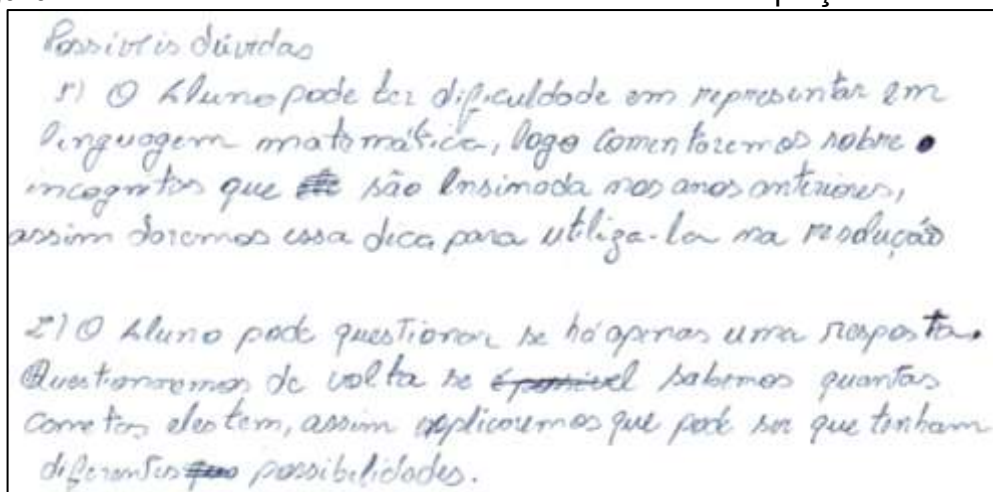 Possiveis dúvidas
1) O Aluno pode ter dificuldade em representar em
linguagem matemática, logo comentaremos sobre
incognitas que são Ensinada nos anos anteriores,
assim daremos essa dica para utiliza-la na resolução
2) O Aluno pode questionar se há apenas uma resposta.
Questionaremos de volta se é possivel sabemos quantas
canetas eles tem, assim explicaremos que pode ser que tenham
diferentes possibilidades.